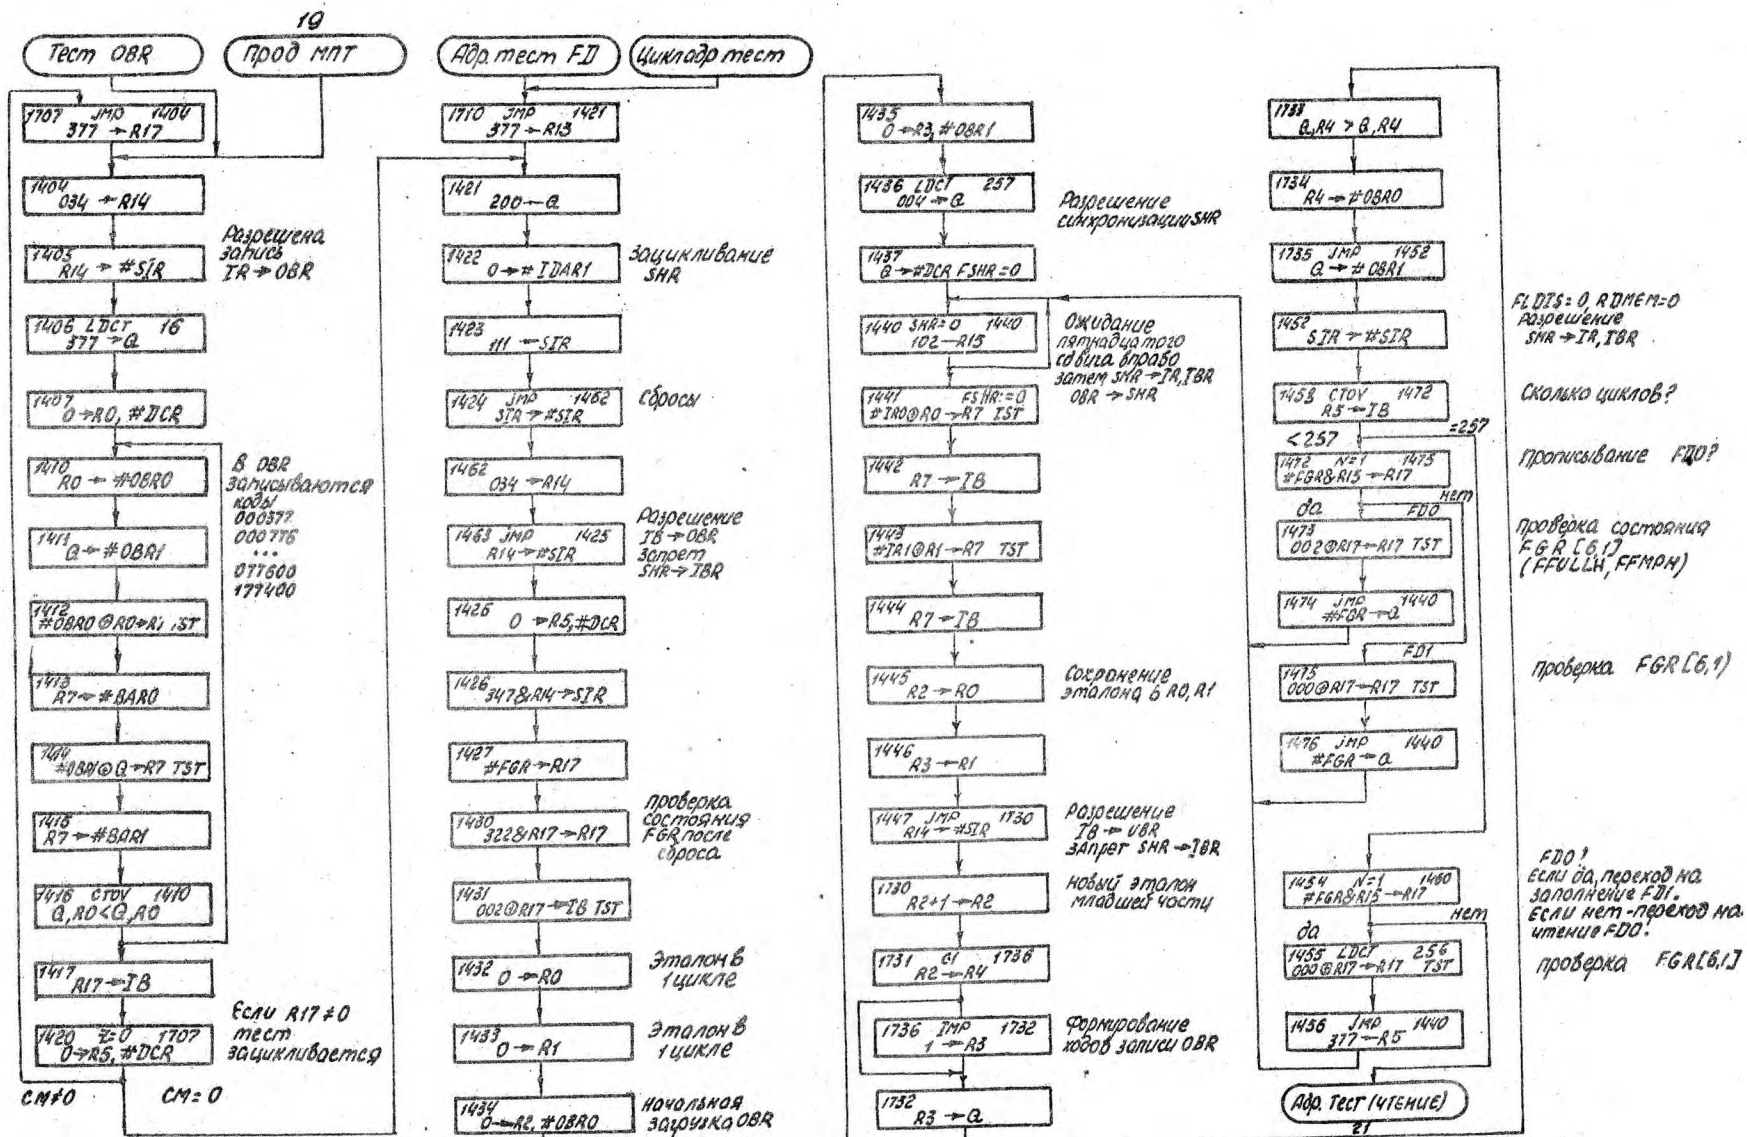 19
Тест OBR
Прод МПТ
Адр. тест FD
Цикл адр тест
1707 JMP 1404
377 → R17
1404
034 → R14
1405
R14 → #SIR
Разрешена
запись
IR → OBR
1406 LDCT 16
377 → Q
1407
0 → R0, #DCR
1410
R0 → #OBR0
В OBR
записываются
коды
000377
000776
...
077600
177400
1411
Q → #OBR1
1412
#OBR0 ⊕ R0 → R1 TST
1413
R7 → #BAR0
1414
#OBR1 ⊕ Q → R7 TST
1415
R7 → #BAR1
1416 CTOV 1410
Q, R0 < Q, R0
1417
R17 → IB
1420 Z=0 1707
0 → R5, #DCR
Если R17 ≠ 0
тест
зацикливается
CM≠0
CM=0
1710 JMP 1421
377 → R13
1421
200 → Q
1422
0 → #IDAR1
Зацикливание
SHR
1423
111 → SIR
1424 JMP 1462
SIR → #SIR
Сбросы
1462
034 → R14
1463 JMP 1425
R14 → #SIR
Разрешение
IB → OBR
Запрет
SHR → IBR
1426
0 → R5, #DCR
1426
347 & R14 → SIR
1427
#FGR → R17
1430
322 & R17 → R17
проверка
состояния
FGR после
сброса
1431
002 ⊕ R17 → IB TST
1432
0 → R0
Эталон в
1 цикле
1433
0 → R1
Эталон в
1 цикле
1434
0 → R2, #OBR0
Начальная
загрузка OBR
1435
0 → R3, #OBR1
1436 LDCT 257
004 → Q
Разрешение
синхронизации SHR
1437
Q → #DCR FSHR=0
1440 SHR=0 1440
102 → R15
Ожидание
пятнадцатого
сдвига вправо
затем SHR → IR, IBR
OBR → SHR
1441 FSHR:=0
#IR0 ⊕ R0 → R7 TST
1442
R7 → IB
1443
#IR1 ⊕ R1 → R7 TST
1444
R7 → IB
1445
R2 → R0
Сохранение
эталона в R0, R1
1446
R3 → R1
1447 JMP 1730
R14 → #SIR
Разрешение
IB → OBR
Запрет SHR → IBR
1730
R2+1 → R2
новый эталон
младшей части
1731 1736
R2 → R4
1736 JMP 1732
1 → R3
Формирование
кодов записи OBR
1732
R3 → Q
1733
Q, R4 > Q, R4
1734
R4 → #OBR0
1735 JMP 1452
Q → #OBR1
1452
SIR → #SIR
FLDIS=0, RDMEM=0
Разрешение
SHR → IR, IBR
1453 CTOV 1472
R5 → IB
Сколько циклов?
<257
=257
1472 N=1 1475
#FGR & R15 → R17
Прописывание FD0?
да
нет
FD0
1473
002 ⊕ R17 → R17 TST
проверка состояния
FGR [6,1]
(FFULLH, FFMPH)
1474 JMP 1440
#FGR → Q
FD1
1475
000 ⊕ R17 → R17 TST
проверка FGR [6,1)
1476 JMP 1440
#FGR → Q
1454 N=1 1460
#FGR & R15 → R17
FD0?
Если да, переход на
заполнение FD1.
Если нет - переход на
чтение FD0.
да
нет
1455 LDCT 256
000 ⊕ R17 → R17 TST
проверка FGR [6,1]
1456 JMP 1440
377 → R5
Адр. Тест (чтение)
21